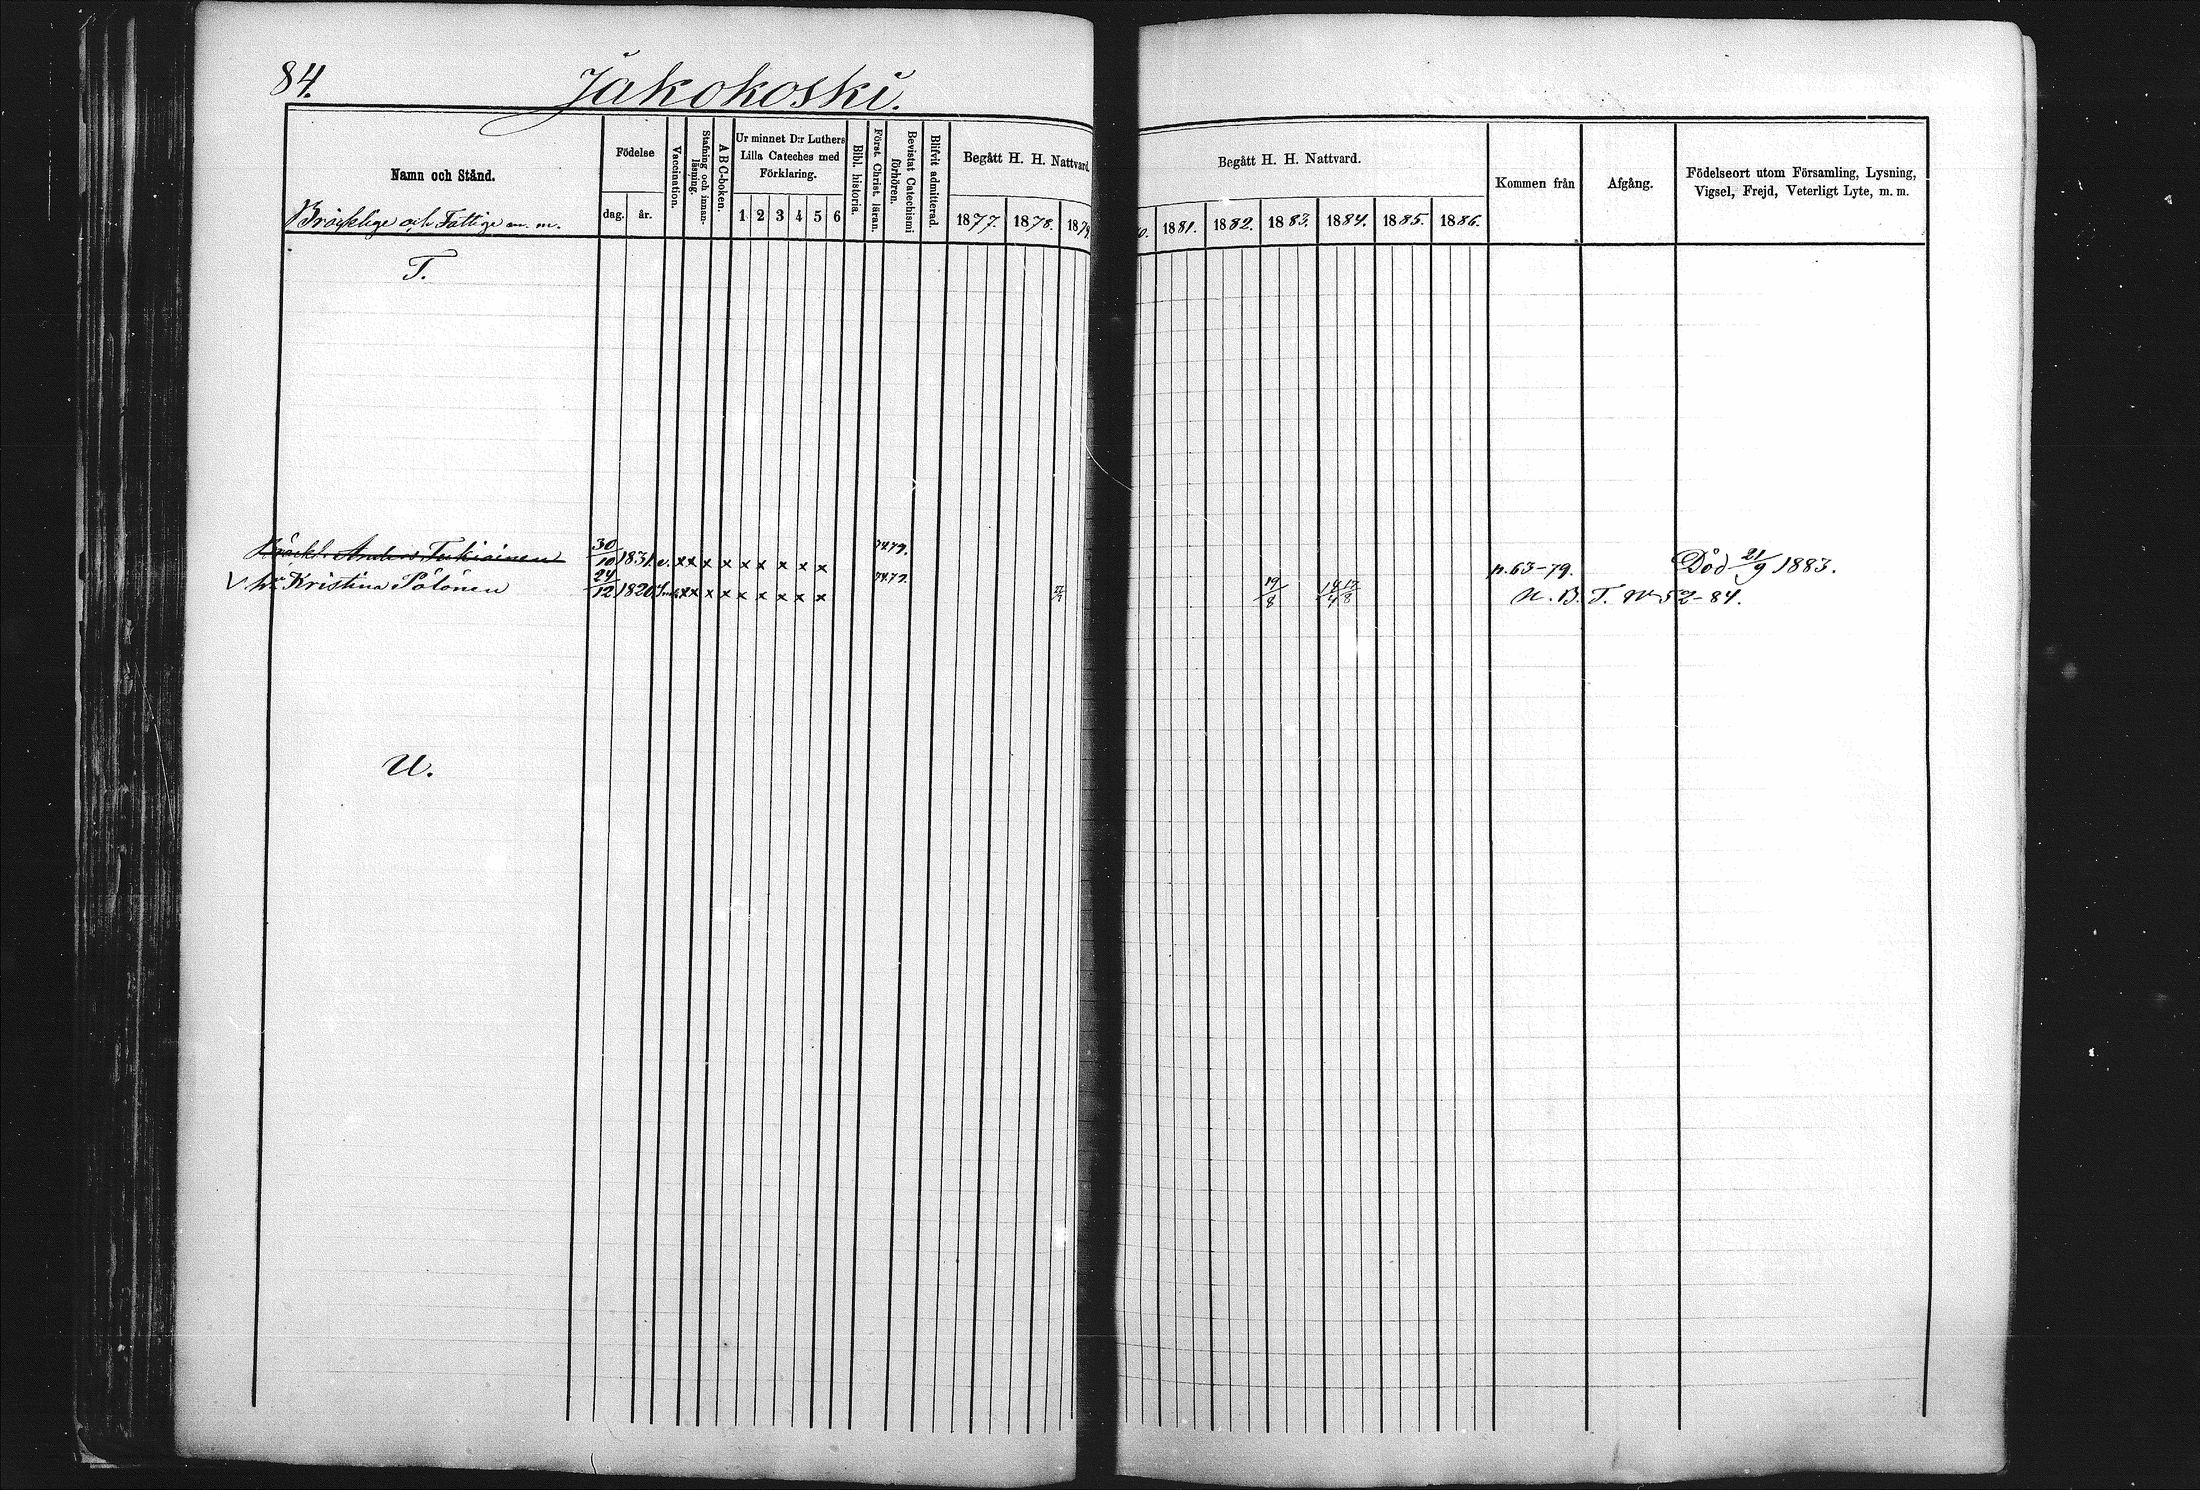 84.
Jakokoski.
Namn och Stånd.
Bräcklige och Fattige m. m.
Födelse
dag. år.
Vaccination.
Stafning och innanläsning.
ABC-boken.
Ur minnet D:r Luthers
Lilla Cateches med
Förklaring.
1 2 3 4 5 6
Bibl. historia.
Först. Christ. läran.
Bevistat Catechismi förhören.
Blifvit admitterad.
Begått H. H. Nattvard.
1877. 1878. 1879
Begått H. H. Nattvard.
0. 1881. 1882. 1883. 1884. 1885. 1886.
Kommen från
Afgång.
Födelseort utom Församling, Lysning,
Vigsel, Frejd, Veterligt Lyte, m. m.
T.
Bräckl. Anders Turkiainen 30/10 1831. v. x x x x x x x x x 74.79. p. 63-79. Död 21/9 1883.
V h. Kristina Pölönen 24/12 1820 x x x x x x x x x 74.79. 19/8 N. B. T. 52-84.
U.